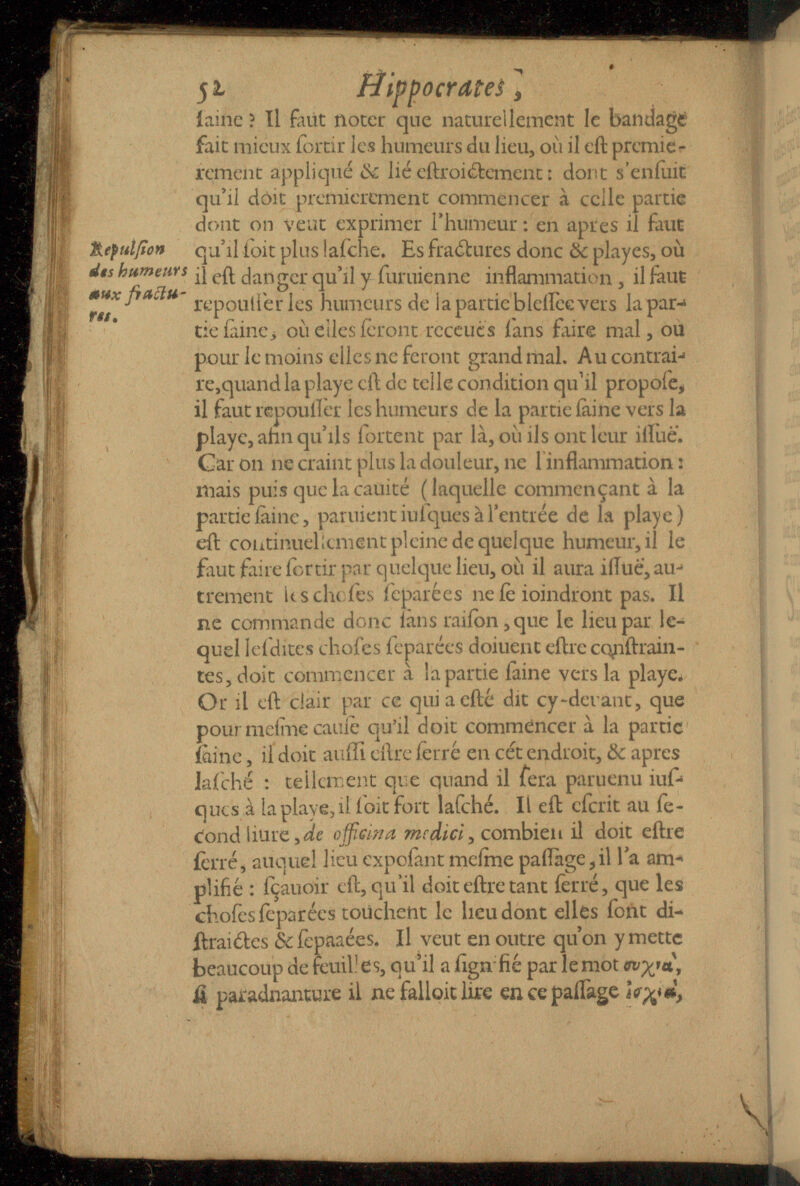 52 Hippocrates,
ſaine ? Il faut noter que naturellement le bandage
fait mieux ſortir les humeurs du lieu, où il eſt premie-
rement appliqué & lié eſtroictement : dont s'enſuit
qu'il doit premierement commencer à celle partie
dont on veut exprimer l'humeur : en apres il faut
qu'il ſoit plus laſche. Es fractures donc & playes, où
il eſt danger qu'il y ſuruienne inflammation, il faut
repouſſer les humeurs de la partie bleſſee vers la par-
tie ſaine, où elles ſeront receuës ſans faire mal, ou
pour le moins elles ne feront grand mal. Au contrai-
re, quand la playe eſt de telle condition qu'il propoſe,
il faut repouſſer les humeurs de la partie ſaine vers la
playe, afin qu'ils ſortent par là, où ils ont leur iſſuë.
Car on ne craint plus la douleur, ne l'inflammation :
mais puis que la cauité (laquelle commençant à la
partie ſaine, paruient iuſques à l'entrée de la playe)
eſt continuellement pleine de quelque humeur, il le
faut faire ſortir par quelque lieu, où il aura iſſuë, au-
trement les choſes ſeparées ne ſe ioindront pas. Il
ne commande donc ſans raiſon, que le lieu par le-
quel leſdites choſes ſeparées doiuent eſtre conſtrain-
tes, doit commencer à la partie ſaine vers la playe.
Or il eſt clair par ce qui a eſté dit cy-deuant, que
pour meſme cauſe qu'il doit commencer à la partie
ſaine, il doit auſſi eſtre ſerré en cét endroit, & apres
laſché : tellement que quand il ſera paruenu iuſ-
ques à la playe, il ſoit fort laſché. Il eſt eſcrit au ſe-
cond liure, de officina medici, combien il doit eſtre
ſerré, auquel lieu expoſant meſme paſſage, il l'a am-
plifié : ſçauoir eſt, qu'il doit eſtre tant ſerré, que les
choſes ſeparées touchent le lieu dont elles ſont di-
ſtraictes & ſepaaées. Il veut en outre qu'on y mette
beaucoup de feuilles, qu'il a ſignifié par le mot συχνὰ,
ſi paradnanture il ne falloit lire en ce paſſage ἰσχνὰ,
Repulſion
des humeurs
aux fractu-
res.